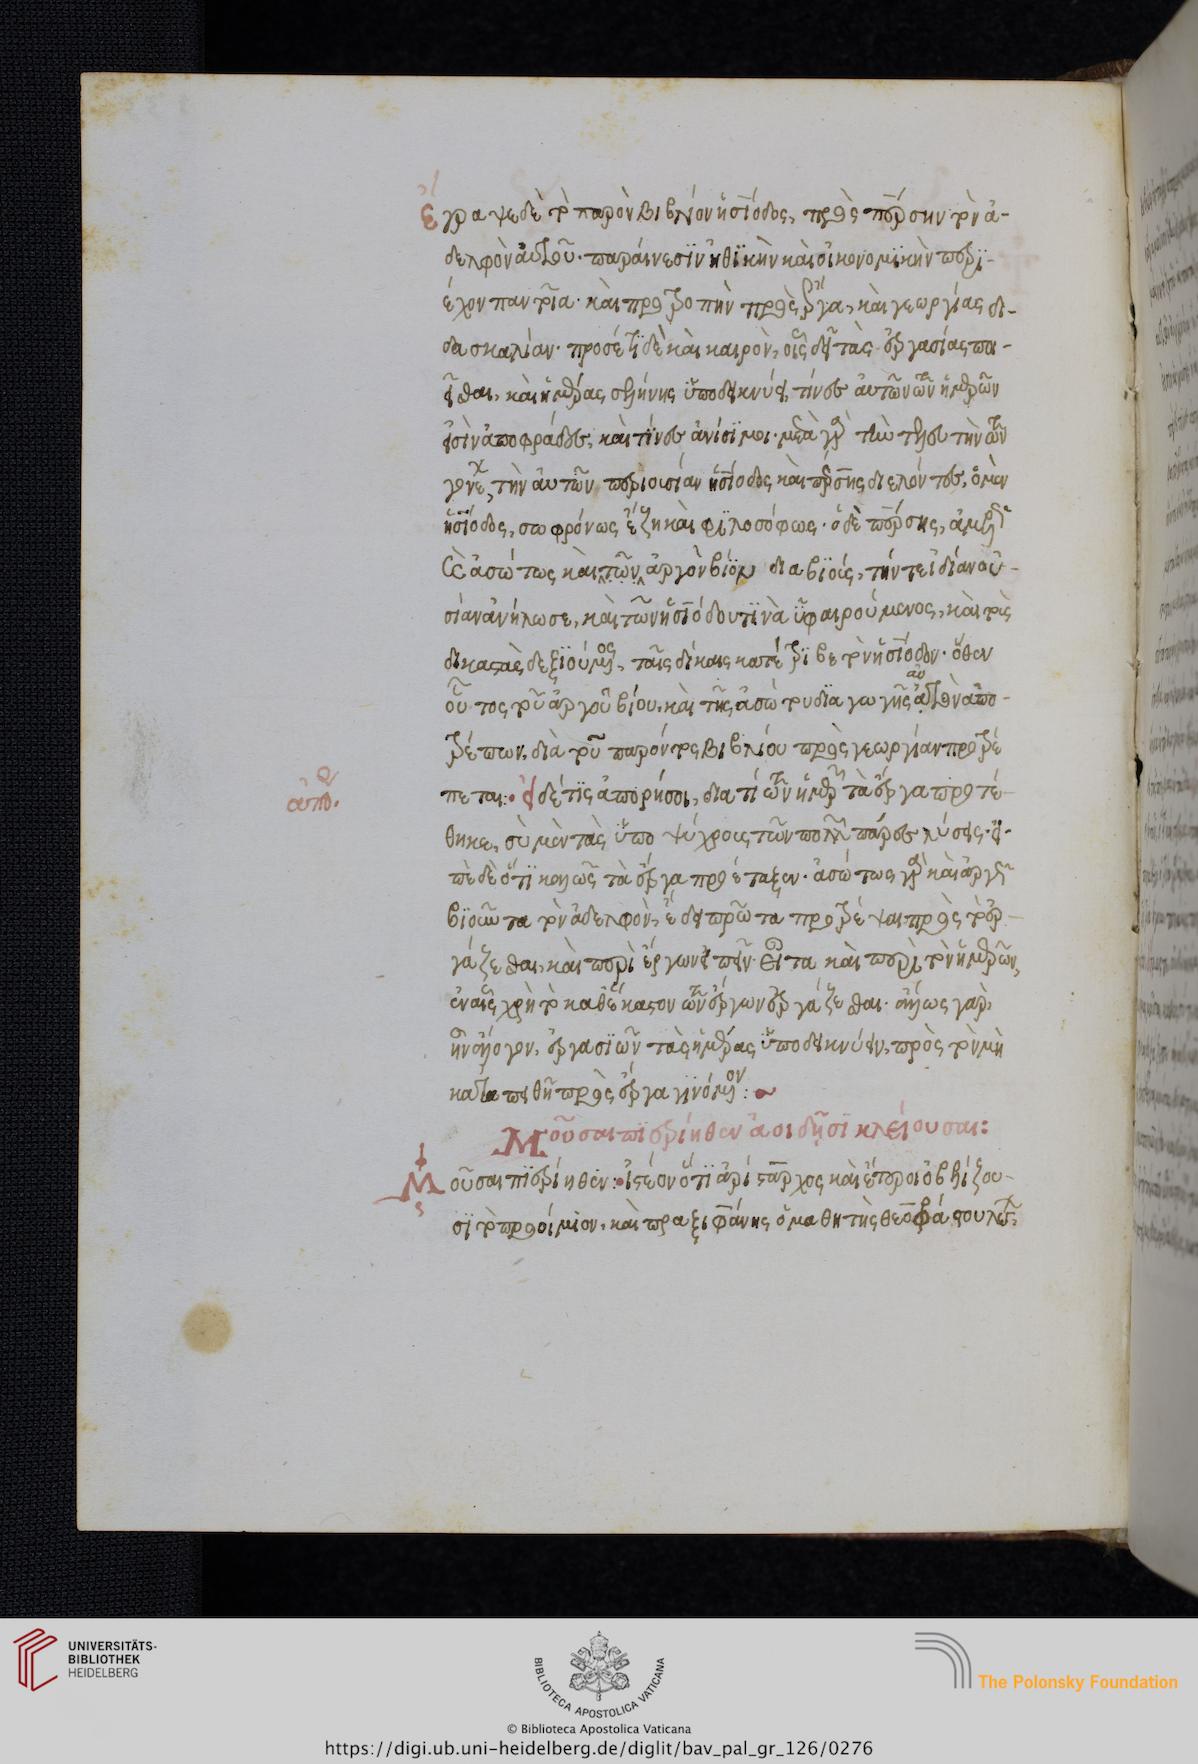 ἔγραψε δὲ τὸ παρὸν βιβλίον ἡσίοδος, πρὸς πέρσην τὸν ἀ-
δελφὸν αὐτοῦ· παραίνεσϊν ἠθϊκὴν καὶ οἰκονομϊκὴν περϊ-
έχον παντοῖα· καὶ προτροπὴν πρὸς ἔργα, καὶ γεωργίας δι-
δασκαλίαν· προσέτϊ δὲ καὶ καιρὸν, οἷς δεῖ τὰς ἐργασίας ποι-
εῖσθαι, καὶ ἡμέρας σελήνης ὑποδεικνύει, τίνες αὐτῶν τῶν ἡμερῶν
εἰσὶν ἀποφράδες, καὶ τίνες ἀνύσϊμοι· μετὰ γὰρ τὴν τελευτὴν τῶν
γονέων, τὴν αὐτῶν περιουσίαν ἡσίοδος καὶ πέρσης διελόντες, ὁ μὲν
ἡσίοδος, σωφρόνως ἔζη καὶ φϊλοσόφως· ὁ δὲ πέρσης, ἀμελῶς
καὶ ἀσώτως καὶ πῶν ἀργὸν βίον διαβϊοὺς, τήν τε ἰδίαν οὐ-
σίαν ἀνήλωσε, καὶ τῶν ἡσϊόδου τϊνὰ ὑφαιρούμενος, καὶ τοὺς
δικαστὰς δεξϊούμενος, ταῖς δίκαις κατέτρϊβε τὸν ἡσίοδον· ὅθεν
οὗτος τοῦ ἀργοῦ βίου, καὶ τῆς ἀσώτου δϊαγωγῆς αὐτὸν ἀπο-
τρέπων, διὰ τοῦ παρόντος βιβλίου πρὸς γεωργίαν προτρέ
πεται:· εἰ δέ τϊς ἀπορήσοι, διατί τῶν ἡμερῶν τὰ ἔργα προτέ-
ἀπορ.
θηκε, σὺ μὲν τὰς ὑπο ψύχρους τῶν πολλῶν πάρες λύσεις· εἰ-
πὲ δὲ ὅτϊ καλῶς τὰ ἔργα προέταξεν· ἀσώτως γὰρ καὶ ἀργῶς
βϊοῦντα τὸν ἀδελφὸν, ἔδει πρῶτα προτρέψαι πρὸς τὸ ἐρ-
γάζεσθαι, καὶ περὶ ἔργων εἰπεῖν· εἶτα καὶ περὶ τῶν ἡμερῶν,
ἐν αἷς χρὴ τὸ καθέκαστον τῶν ἔργων ἐργάζεσθαι· ἄλλως γὰρ,
ἦν ἄλογον, ἐργασϊῶν τὰς ἡμέρας ὑποδεικνύειν, πρὸς τὸν μὴ
καταπειθῆ πρὸς ἔργα γϊνόμενον:~
Μοῦσαι πϊερίηθεν ἀοιδῇσϊ κλείουσαι:
Μοῦσαι πϊερίηθεν: ἰστέον ὅτϊ ἀρίσταρχος καὶ ἕτεροι ὀβελίζου-
σϊ τὸ προοίμιον, καὶ πραξιφάνης ὁ μαθητὴς θεοφράστου λέγει,
UNIVERSITÄTS-
BIBLIOTHEK
HEIDELBERG
BIBLIOTECA APOSTOLICA VATICANA
The Polonsky Foundation
© Biblioteca Apostolica Vaticana
https://digi.ub.uni-heidelberg.de/diglit/bav_pal_gr_126/0276